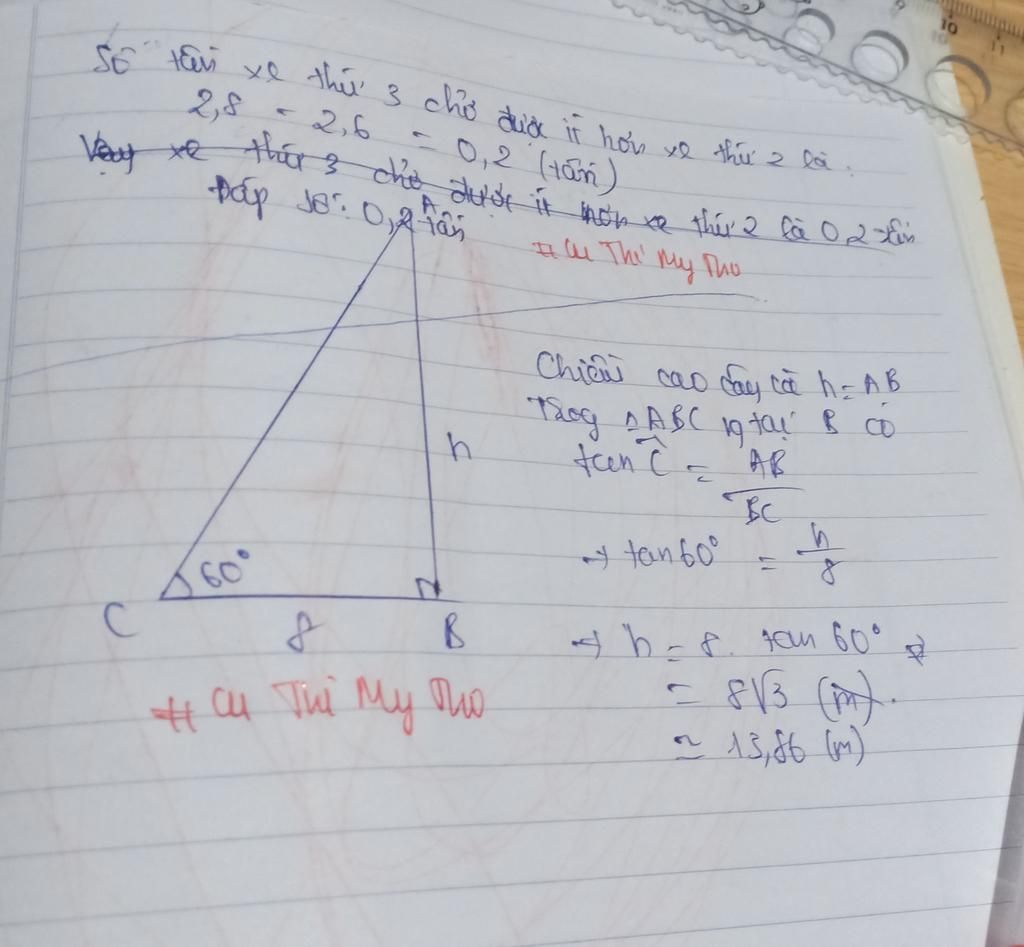 Số tấn xe thứ 3 chở được ít hơn xe thứ 2 là:
2,8 - 2,6 = 0,2 (tấn)
Vậy xe thứ 3 chở được ít hơn xe thứ 2 là 0,2 tấn
Đáp số: 0,2 tấn
# Cu Thi My Tho
A
h
60°
C
8
B
# Cu Thi My Tho
Chiều cao cây là h = AB
Trog △ABC vg tại B có
tan Ĉ = AB/BC
→ tan 60° = h/8
→ h = 8. tan 60°
= 8√3 (m).
≃ 13,86 (m)
9 10 11